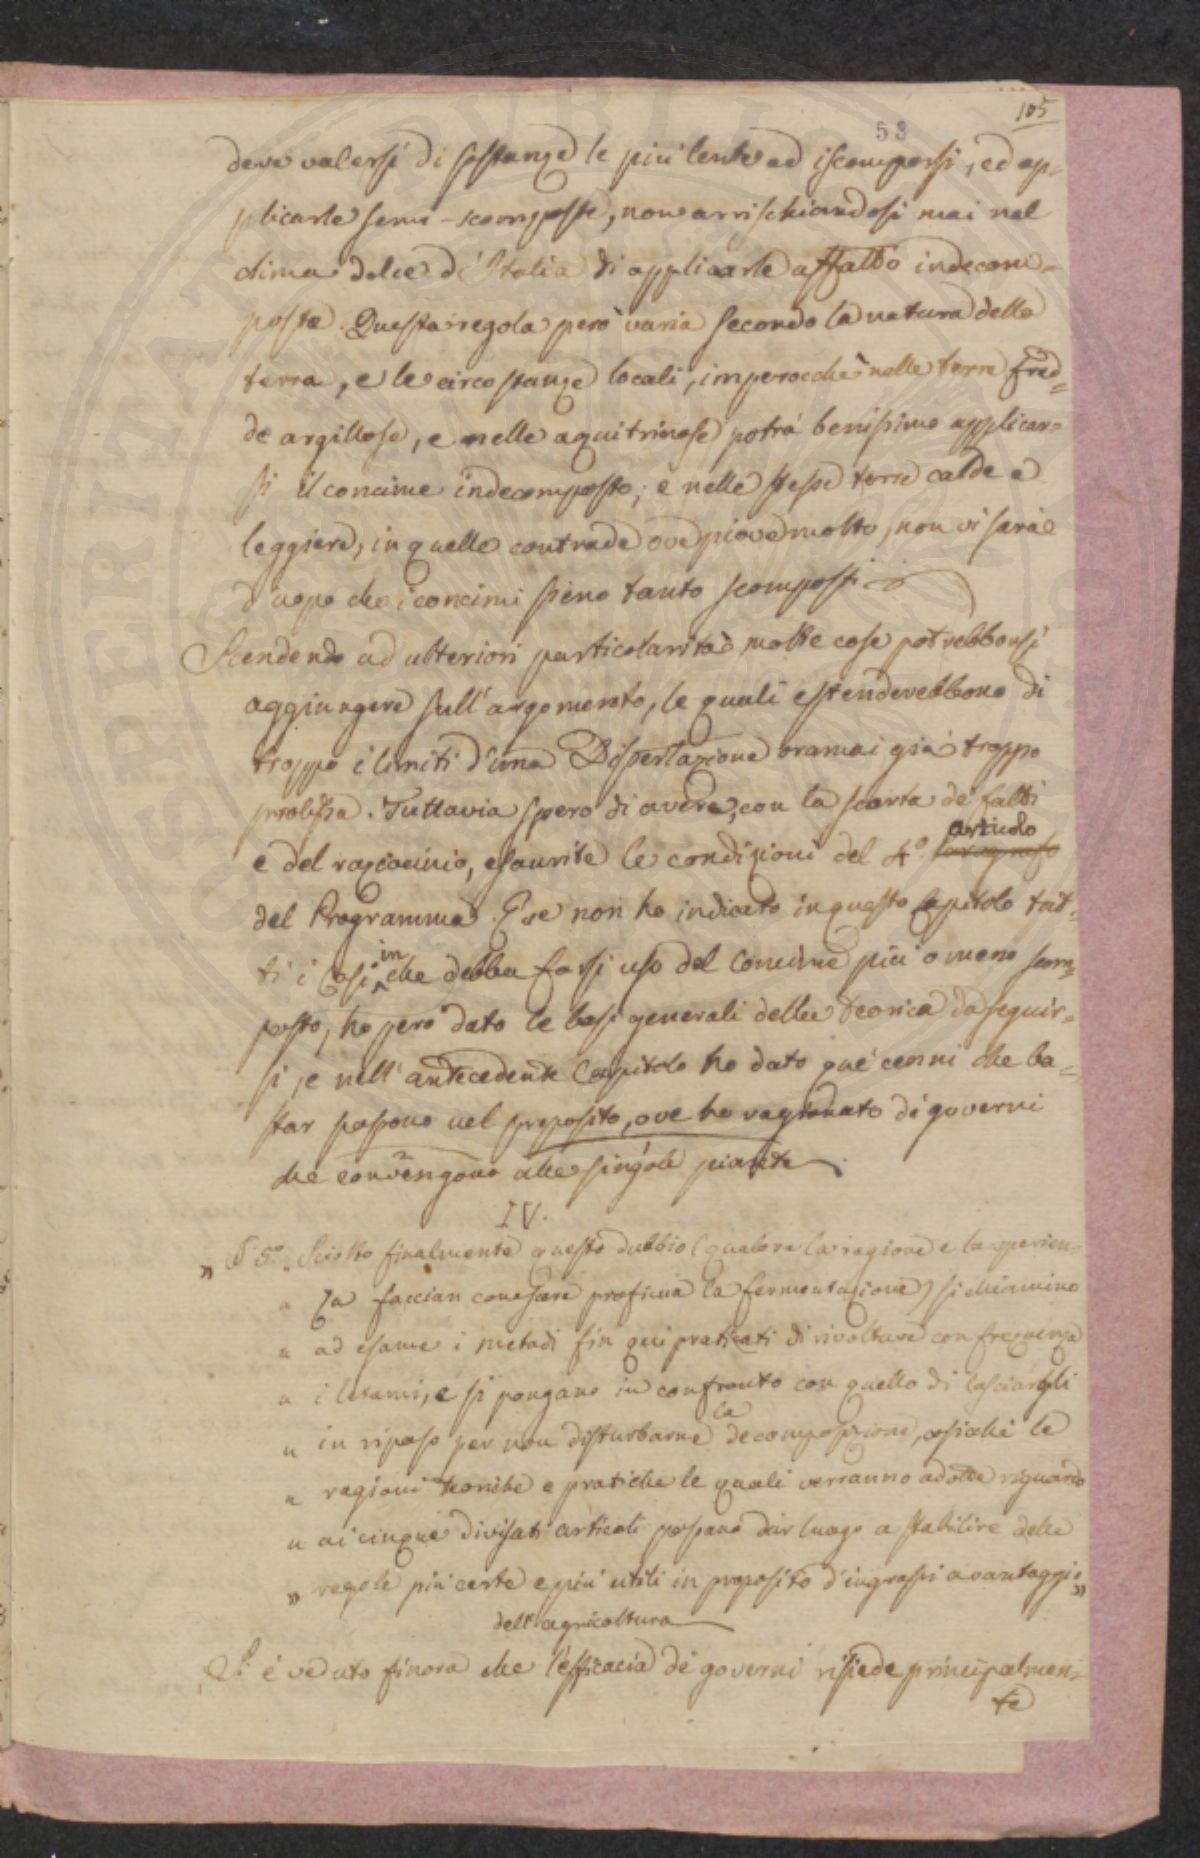 105
53
deve valersi di sostanze le più lente ad iscomporsi, ed ap-
plicarle semi-scomposte, non arrischiandosi mai nel
clima dolce d'Italia di applicarle affatto indecom-
poste. Questa regola però varia secondo la natura della
terra, e le circostanze locali, imperocchè nelle terre fred-
de argillose, e nelle aquitrinose potrà benissimo applicar-
si il concime indecomposto; e nelle stesse terre calde e
leggiere, in quelle contrade ove piove molto, non vi sarà
d'uopo che i concimi sieno tanto scomposti.
Scendendo ad ulteriori particolarità molte cose potrebbonsi
aggiungere sull'argomento, le quali estenderebbono di
troppo i limiti d'una Dissertazione oramai già troppo
prolissa. Tuttavia spero di avere, con la scorta de' fatti
e del raziocinio, esaurite le condizioni del 4.º articolo
del Programma. E se non ho indicato in questo Capitolo tut-
ti i casi in che debba farsi uso del Concime più o meno scom-
posto, ho però dato le basi generali della teorica da seguir-
si, e nell'antecedente Capitolo ho dato que' cenni che ba-
star possono nel proposito, ove ho ragionato de' governi
che convengono alle singole piante.
IV.
" § 5.º Sciolto finalmente questo dubbio (qualora la ragione e la sperien-
" za faccian conoscere proficua la fermentazione) si chiamino
" ad esame i metodi fin qui praticati di rivoltare con frequenza
" i letami, e si pongano in confronto con quello di lasciargli
" in riposo per non disturbarne la decomposizione, cosicchè le
" ragioni teoriche e pratiche le quali verranno adotte riguardo
" ai cinque divisati articoli possano dar luogo a stabilire delle
" regole più certe e più utili in proposito d'ingrassi a vantaggio "
dell'agricoltura
Si è veduto finora che l'efficacia de' governi risiede principalmen-
te